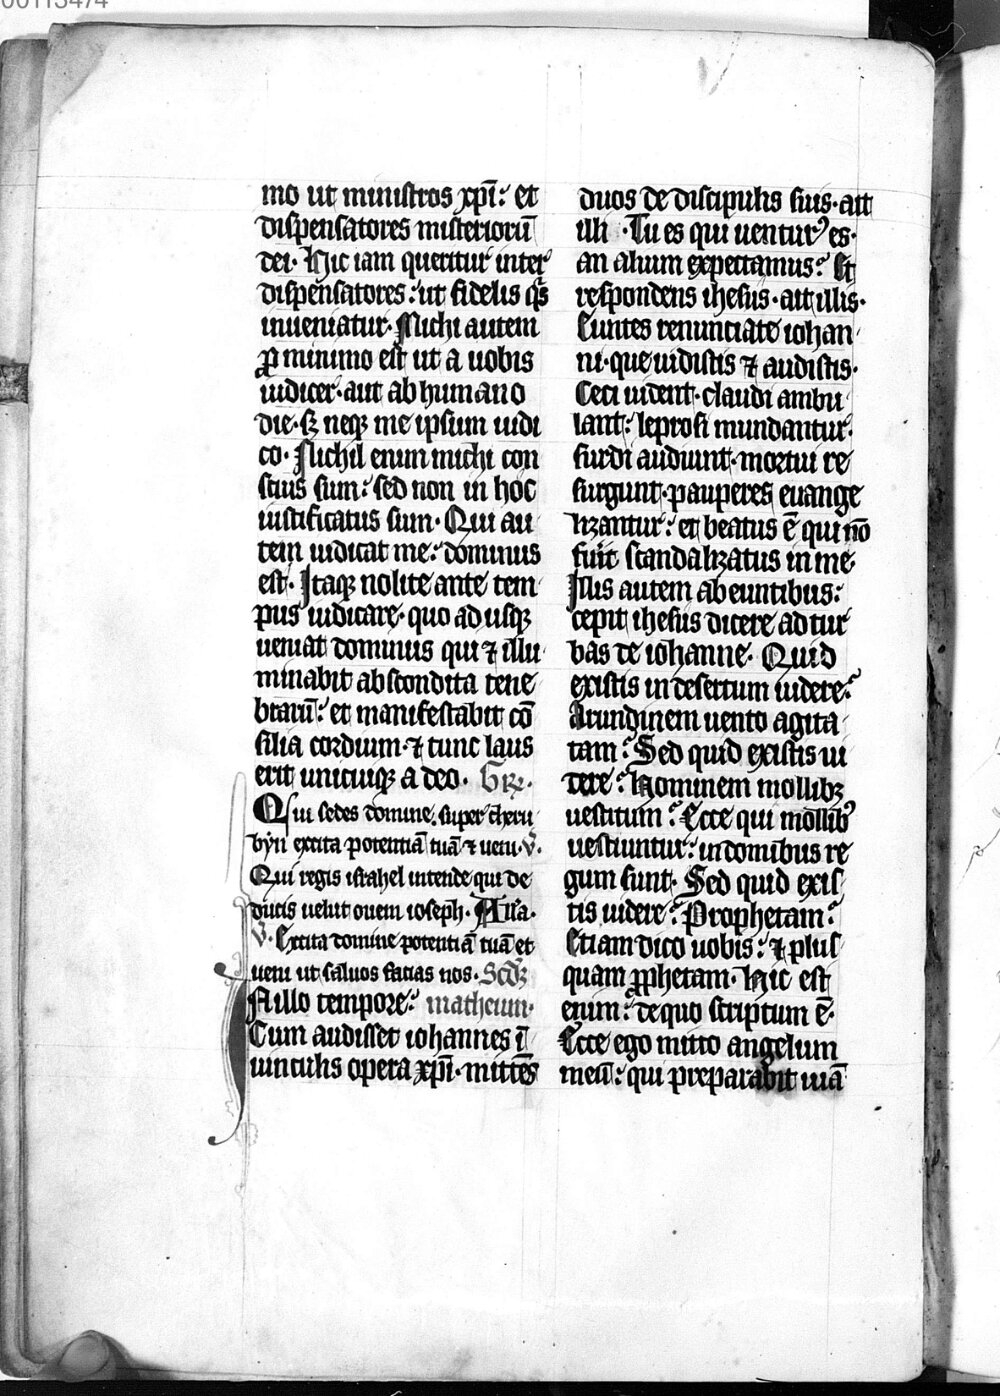 00113474
mo ut ministros xp̄i: et
dispensatores misterioru̅
dei· Hic iam queritur inter
dispensatores: ut fidelis q̅s
inueniatur· Michi autem
ꝓ minimo est ut a uobis
iudicer· aut ab humano
die· sꝫ neqꝫ me ipsum iudi
co· Nichil enim michi con
scius sum: sed non in hoc
iustificatus sum· Qui au
tem iudicat me: dominus
est· Itaqꝫ nolite ante tem
pus iudicare· quo ad usqꝫ
ueniat dominus qui ⁊ illu
minabit abscondita tene
braru̅: et manifestabit co̅
silia cordium· ⁊ tunc laus
erit unicuiqꝫ a deo· Gr̅·
Qui sedes domine super cheru
byn excita potentia̅ tua̅ ⁊ ueni· V̅·
Qui regis israhel intende qui de
ducis uelut ouem ioseph· All'a·
V̅· Excita domine potentia̅ tua̅ et
ueni ut saluos facias nos· Scd̅ꝫ
In illo tempore: matheum·
Cum audisset iohannes i̅
uinculis opera xp̄i· mitte̅s
duos de discipulis suis· ait
illi· Tu es qui uentur᾿ es·
an alium expectamus? Et
respondens ihesus· ait illis·
Euntes renunciate iohan
ni· que uidistis ⁊ audistis·
Ceci uident· claudi ambu
lant: leprosi mundantur·
surdi audiunt· mortui re
surgunt· pauperes euange
lizantur: et beatus e̅ qui no̅
fuit scandalizatus in me
Illis autem abeuntibus:
cepit ihesus dicere ad tur
bas de iohanne· Quid
existis in desertum uidere?
Arundinem uento agita
tam? Sed quid existis ui
dere? Hominem mollibꝫ
uestitum? Ecce qui mollib᾿
uestiuntur: in domibus re
gum sunt· Sed quid exis
tis uidere? Prophetam?
Etiam dico uobis: ⁊ plus
quam ꝓphetam· Hic est
enim: de quo scriptum e̅·
Ecce ego mitto angelum
meu̅: qui preparabit uia̅